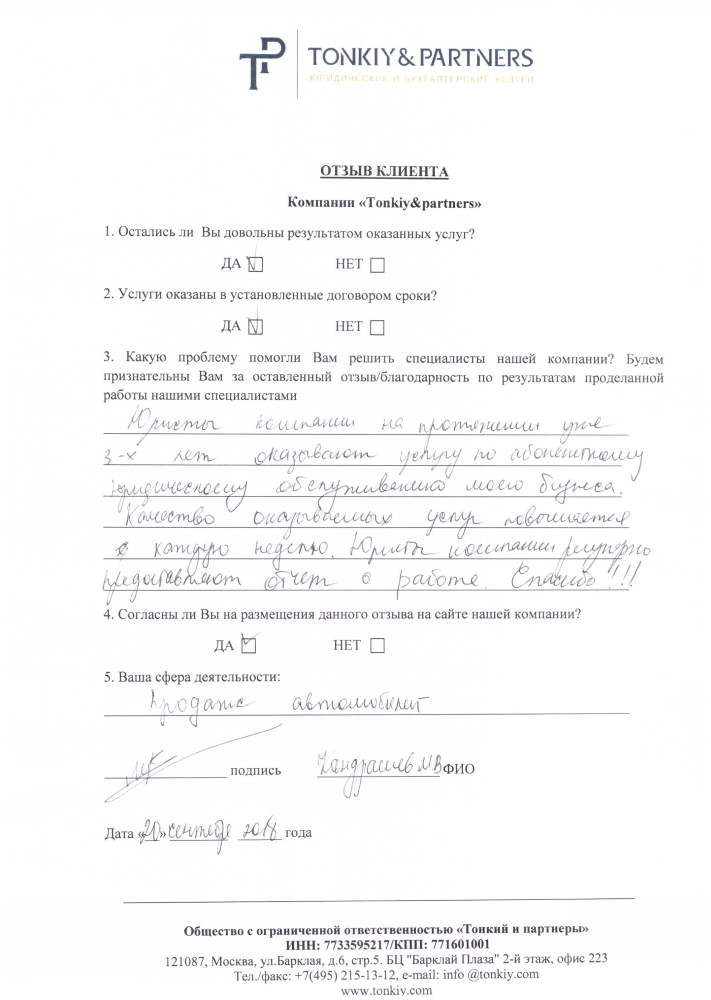 TP
TONKIY & PARTNERS
ЮРИДИЧЕСКИЕ И БУХГАЛТЕРСКИЕ УСЛУГИ
ОТЗЫВ КЛИЕНТА
Компании «Tonkiy&partners»
1. Остались ли Вы довольны результатом оказанных услуг?
ДА НЕТ
2. Услуги оказаны в установленные договором сроки?
ДА НЕТ
3. Какую проблему помогли Вам решить специалисты нашей компании? Будем
признательны Вам за оставленный отзыв/благодарность по результатам проделанной
работы нашими специалистами
Юристы компании на протяжении уже
3-х лет оказывают услугу по абонентскому
юридическому обслуживанию моего бизнеса.
Качество оказываемых услуг повышается
каждую неделю. Юристы компании регулярно
предоставляют отчет о работе. Спасибо!!!
4. Согласны ли Вы на размещения данного отзыва на сайте нашей компании?
ДА НЕТ
5. Ваша сфера деятельности:
Продажа автомобилей
подпись МВ ФИО
Дата «20» сентября 2018 года
Общество с ограниченной ответственностью «Тонкий и партнеры»
ИНН: 7733595217/КПП: 771601001
121087, Москва, ул.Барклая, д.6, стр.5. БЦ "Барклай Плаза" 2-й этаж, офис 223
Тел./факс: +7(495) 215-13-12, e-mail: info @tonkiy.com
www.tonkiy.com